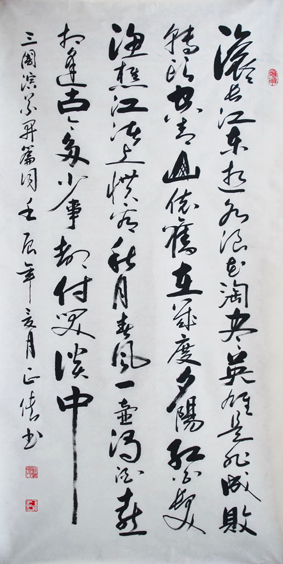 滚滚长江东逝水浪花淘尽英雄是非成敗
轉头空青山依舊在几度夕陽红白髮
渔樵江渚上惯看秋月春風一壶濁酒喜
相逢古今多少事都付笑谈中
三國演义開篇词壬辰年亥月正书